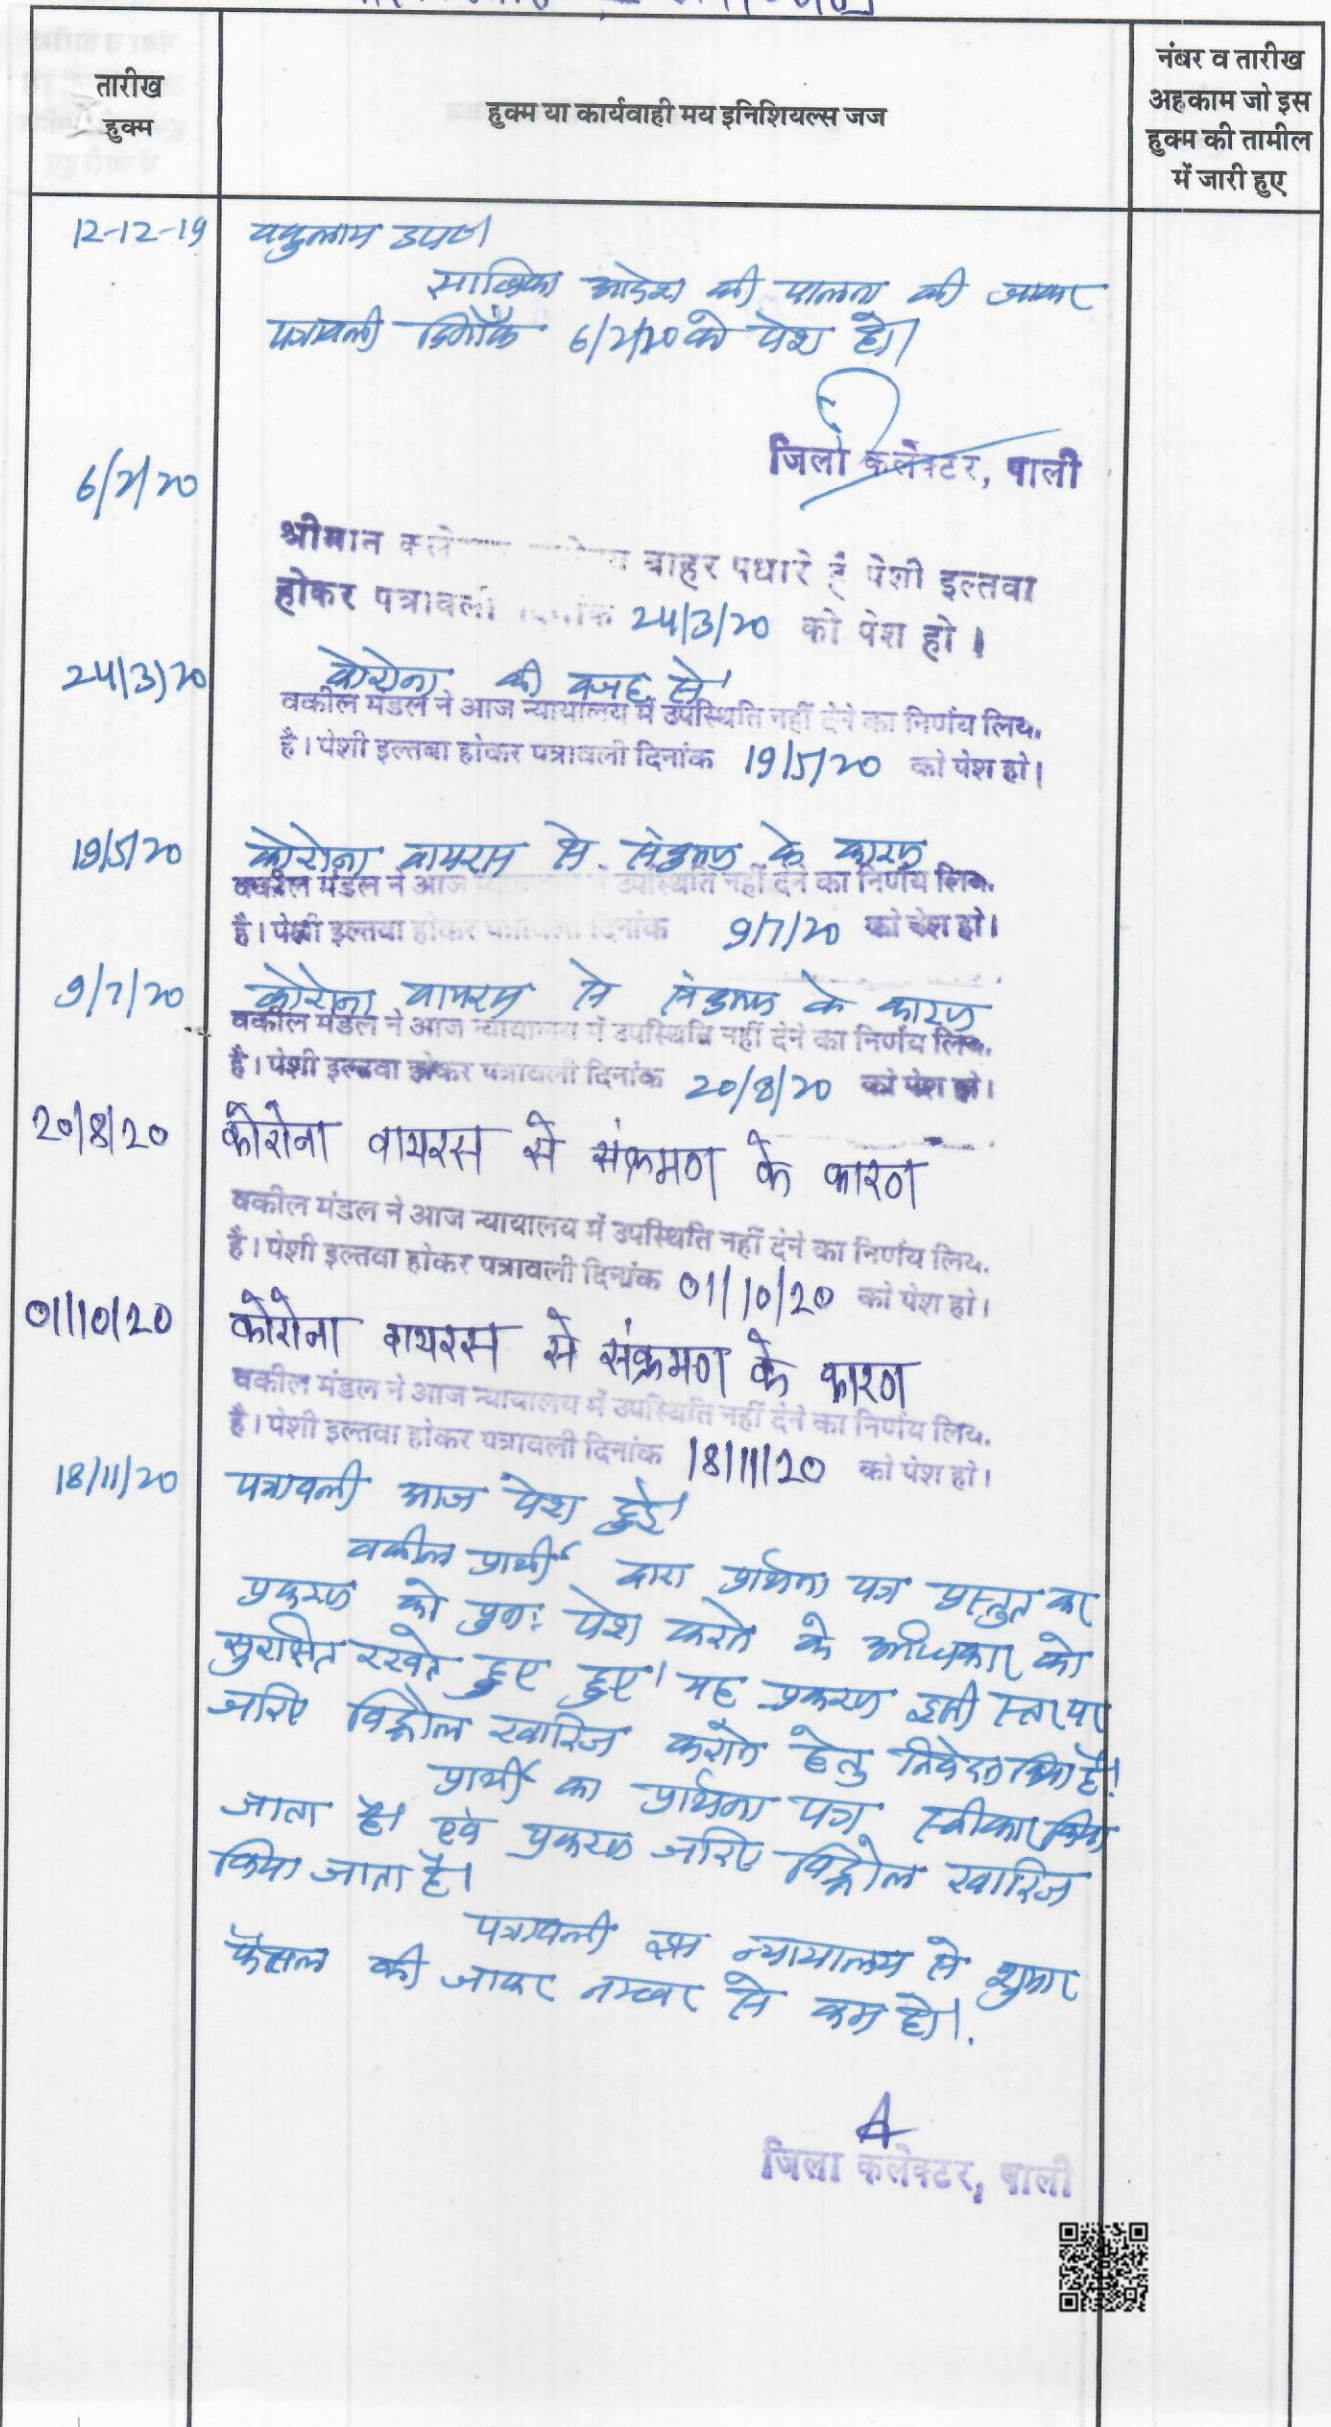 तारीख
हुक्म
हुक्म या कार्यवाही मय इनिशियल्स जज
नंबर व तारीख
अहकाम जो इस
हुक्म की तामील
में जारी हुए
12-12-19
साबिका आदेश की पालना की जाकर
पत्रावली दिनाँक 6/2/20 को पेश हो।
जिला कलेक्टर, पाली
6/2/20
श्रीमान बाहर पधारे हैं पेशी इल्तवा
होकर पत्रावली दिनांक 24/3/20 को पेश हो।
24/3/20
कोरोना की वजह से
वकील मंडल ने आज न्यायालय में उपस्थिति नहीं देने का निर्णय लिय.
है। पेशी इल्तबा होकर पत्रावली दिनांक 19/5/20 को पेश हो।
19/5/20
कोरोना वायरस से संक्रमण के कारण
वकील मंडल ने आज न्यायालय में उपस्थिति नहीं देने का निर्णय लिय.
है। पेशी इल्तवा होकर पत्रावली दिनांक 9/7/20 को पेश हो।
9/7/20
कोरोना वायरस से संक्रमण के कारण
वकील मंडल ने आज न्यायालय में उपस्थिति नहीं देने का निर्णय लिय.
है। पेशी इल्तवा होकर पत्रावली दिनांक 20/8/20 को पेश हो।
20/8/20
कोरोना वायरस से संक्रमण के कारण
वकील मंडल ने आज न्यायालय में उपस्थिति नहीं देने का निर्णय लिय.
है। पेशी इल्तवा होकर पत्रावली दिनांक 01/10/20 को पेश हो।
01/10/20
कोरोना वायरस से संक्रमण के कारण
वकील मंडल ने आज न्यायालय में उपस्थिति नहीं देने का निर्णय लिय.
है। पेशी इल्तवा होकर पत्रावली दिनांक 18/11/20 को पेश हो।
18/11/20
पत्रावली आज पेश हुई।
वकील प्रार्थी द्वारा प्रार्थना पत्र प्रस्तुत कर
प्रकरण को पुनः पेश करने के अधिकार को
सुरक्षित रखते हुए हुए। यह प्रकरण इसी स्तर पर
जरिए विड्रोल खारिज कराने हेतु निवेदन किया है।
प्रार्थी का प्रार्थना पत्र स्वीकार किया
जाता है। एवं प्रकरण जरिए विड्रोल खारिज
किया जाता है।
पत्रावली इस न्यायालय से शुमार
फैसल की जाकर नम्बर से कम हो।.
जिला कलेक्टर, पाली